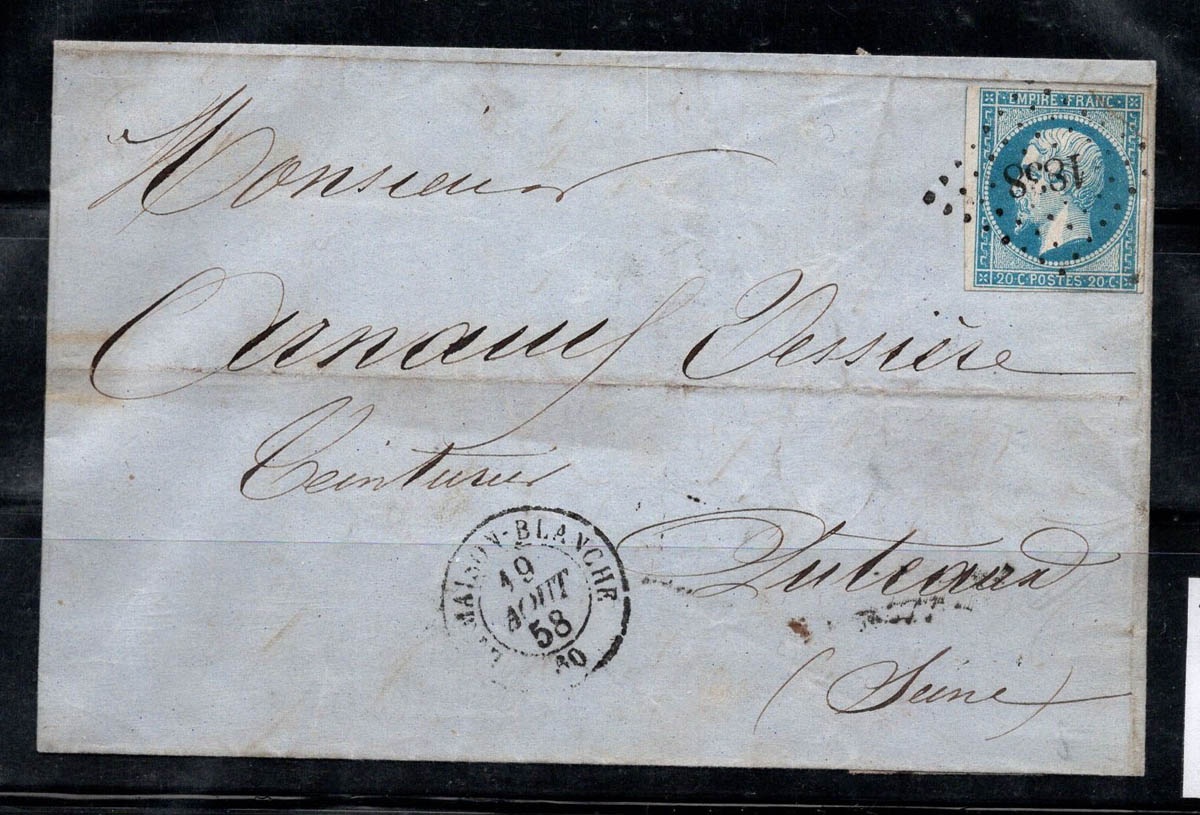 Monsieur
EMPIRE FRANC
1838
20 C POSTES 20 C
Arnauf Vessière
Teinturier
LA MAISON-BLANCHE
19
AOUT
58
Puteaux
(Seine)